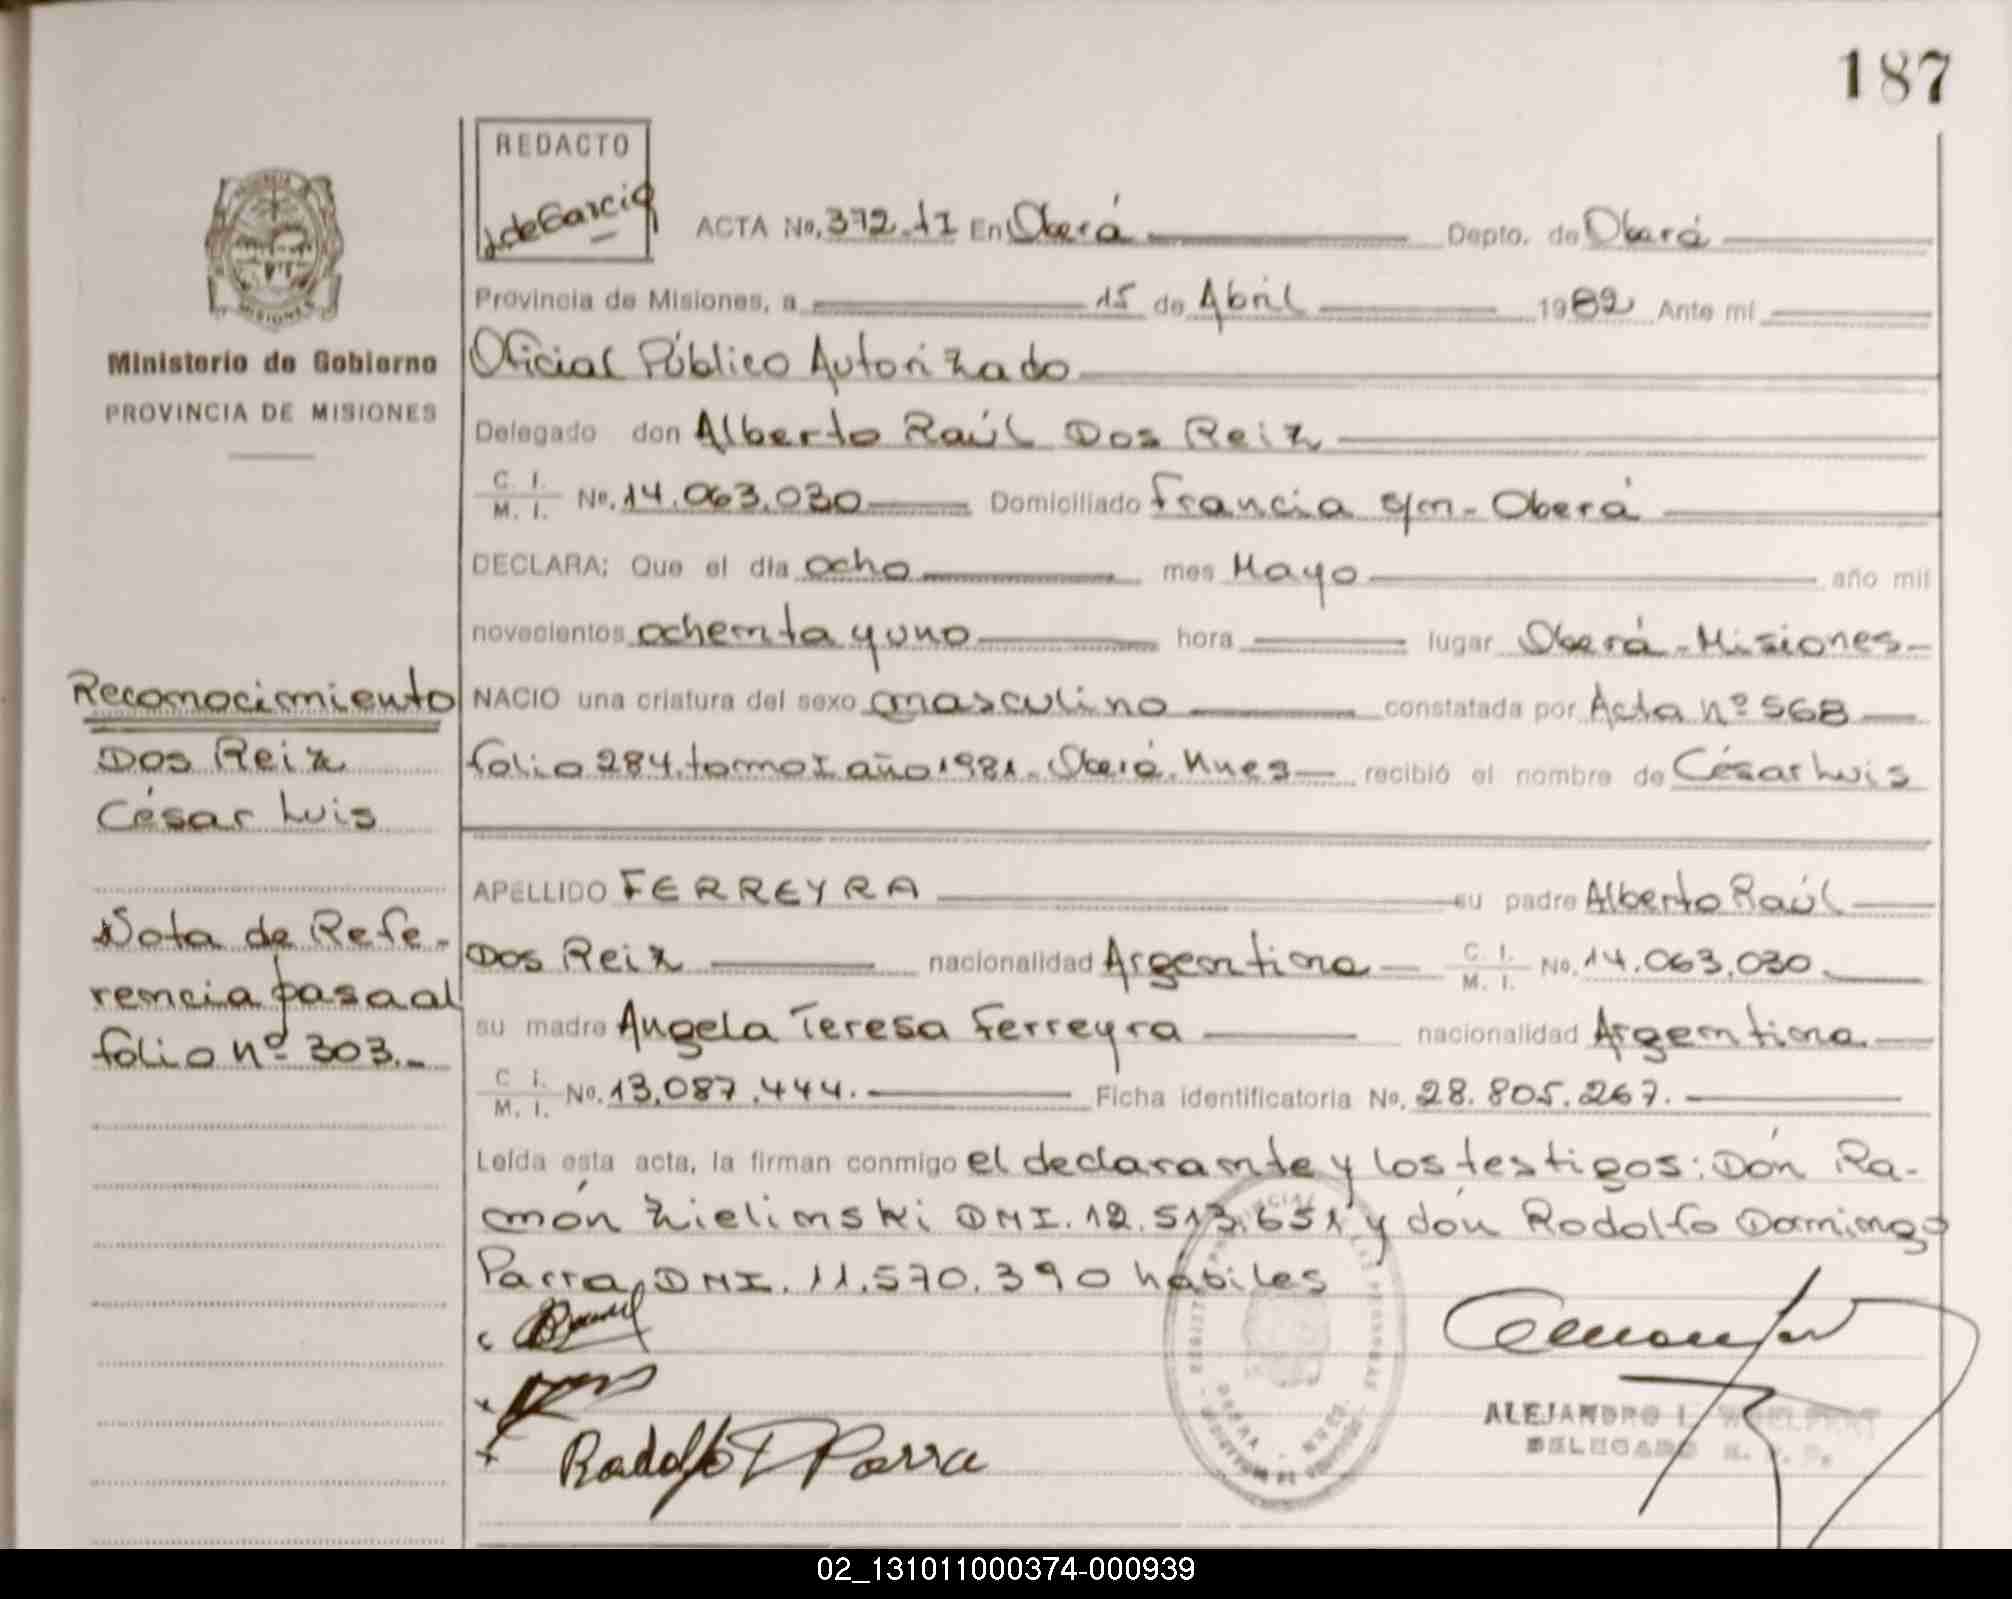 187
REDACTO
J. de Garcia
ACTA No. 372.TI En Oberá Depto. de Oberá
Provincia de Misiones, a 15 de Abril 1982 Ante mí
Oficial Público Autorizado
Delegado don Alberto Raúl Dos Reix
C. I. / M. I. No. 14.063.030 Domiciliado Francia s/n - Oberá
DECLARA; Que el día ocho mes Mayo año mil
novecientos ochenta y uno hora lugar Oberá - Misiones -
NACIO una criatura del sexo masculino constatada por Acta nº 568
folio 284. tomo I año 1981. Oberá. Mnes recibió el nombre de César Luis
APELLIDO FERREYRA su padre Alberto Raúl
Dos Reix nacionalidad Argentina C. I. / M. I. No. 14.063.030.
su madre Angela Teresa Ferreyra nacionalidad Argentina
C. I. / M. I. No. 13.087.444. Ficha identificatoria No. 28.805.267.
Leída esta acta, la firman conmigo el declarante y los testigos: Dón Ra-
món Zielinski DNI. 12.513.651 y dón Rodolfo Domingo
Parra, DNI. 11.570.390 habiles
Rodolfo D Parra
ALEJANDRO I.
DELEGADO
PROVINCIA
MISIONES
Ministerio de Gobierno
PROVINCIA DE MISIONES
Reconocimiento
Dos Reix
César Luis
Nota de Refe-
rencia pasa al
folio nº 303.-
02_131011000374-000939